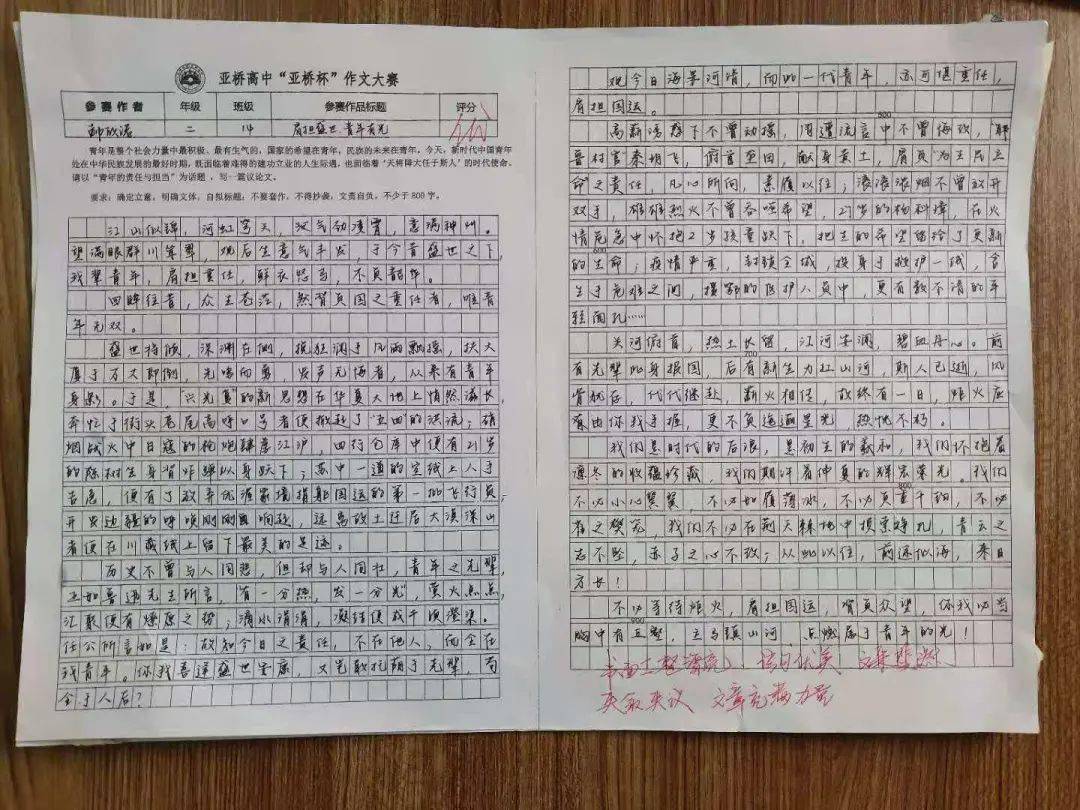 亚桥高中“亚桥杯”作文大赛
参赛作者 年级 班级 参赛作品标题 评分
二 14 肩担盛世 青年有光
青年是整个社会力量中最积极、最有生气的，国家的希望在青年，民族的未来在青年，今天，新时代中国青年
处在中华民族发展的最好时期，既面临着难得的建功立业的人生际遇，也面临着“天将降大任于斯人”的时代使命。
请以“青年的责任与担当”为话题，写一篇议论文。
要求：确定立意；明确文体，自拟标题；不要套作，不得抄袭，文责自负，不少于800字。
江山似锦，河虹写天，汉气劲凌霄，意满神州。
望满眼群川耸翠，观后生意气丰发，于今昔盛世之下，
我辈青年，肩担重任，鲜衣怒马，不负韶华。
回眸往昔，众生苍茫，然背负国之重任者，唯青
年无双。
盛世将倾，深渊在侧，挽狂澜于风雨飘摇，扶大
厦于万丈即倒，先啼而勇，发声无悔者，从来有青年
身影。于是，“兴光复”的新思想在华夏大地上悄然滋长，
奔忙于街头巷尾高呼口号者便掀起了“五四”的洪流；硝
烟战火中日寇的枪炮肆虐江沪，四行仓库中便有21岁
的陈树生身背炸弹以身跃下；苏中一道的空纸上人手
告急，便有了放弃优渥家境捐躯国运的第一批飞行员；
开发边疆的呼唤刚刚响起，远离故土迁居大漠深山
者便在川藏线上留下最美的足迹。
历史不曾与人同悲，但却与人同壮，青年之光犀，
正如鲁迅先生所言，“有一分热，发一分光”，萤火点点，
汇聚便有燎原之势；滴水涓涓，凝结便成千顷澄渠。
任公所言如是：故知今日之责任，不在他人，而全在
我青年。你我喜逢盛世安康，又岂敢
全于人后？
观今日海晏河清，而吾一代青年，亦可堪重任，
肩担国运。
高薪诱惑下不曾动摇，周遭流言中不曾悔改，
村官秦玥飞，俯首至田，献身黄土，肩负“为生民立
命”之责任，凡心所向，素履以往；滚滚浓烟不曾放开
双手，雄雄烈火不曾吞噬希望，27岁的杨科璋，在火
情危急中怀抱2岁孩童跃下，把生的希望留给了更新
的生命；疫情严重，封锁全城，投身于救护一线，舍
生于危难之间，援鄂的医护人员中，更有数不清的年
轻面孔……
关河俯首，热土长留，江河安澜，碧血丹心。前
有先辈以身报国，后有新生力扛山河，斯人已逝，风
骨犹存，代代继赴，薪火相传，故终有一日，炬火应
有由你我手握，更不负迢遥星光，热忱不朽。
我们是时代的后浪，是初生的羲和，我们怀抱着
凛冬的收蕴珍藏，我们期许着仲夏的辉宏荣光。我们
不必小心翼翼，不必如履薄冰，不必负重千钧，不必
有之樊笼，我们不必在荆天棘地中损重挣扎，青云之
志不坠，赤子之心不改；从此以往，前途似海，来日
方长！
不必等待炬火，肩担国运，背负众望，你我必当
胸中有丘壑，立马镇山河，点燃属于青年的光！
500
600
700
800
900
书面工整漂亮，语句优美 文采斐然
夹叙夹议 文章充满力量